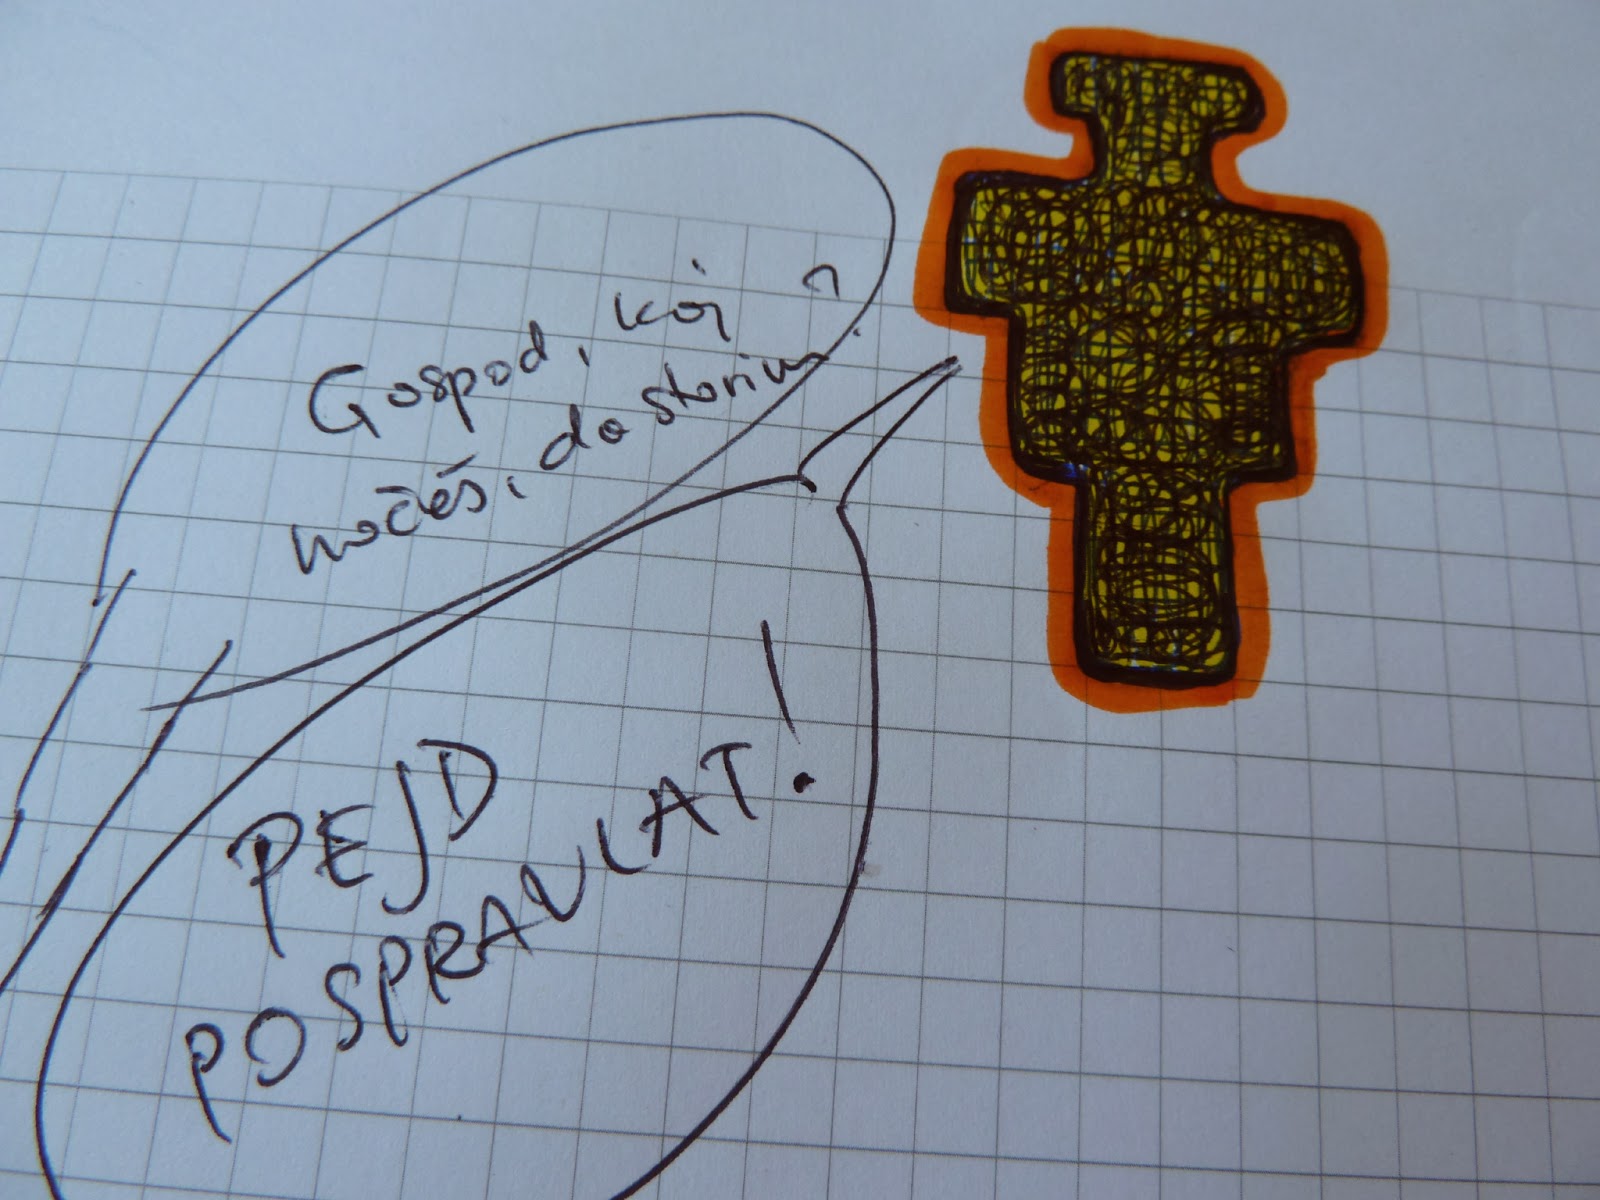 Gospod, kaj
hočeš, da storim?
PEJD
POSPRAVLAT!